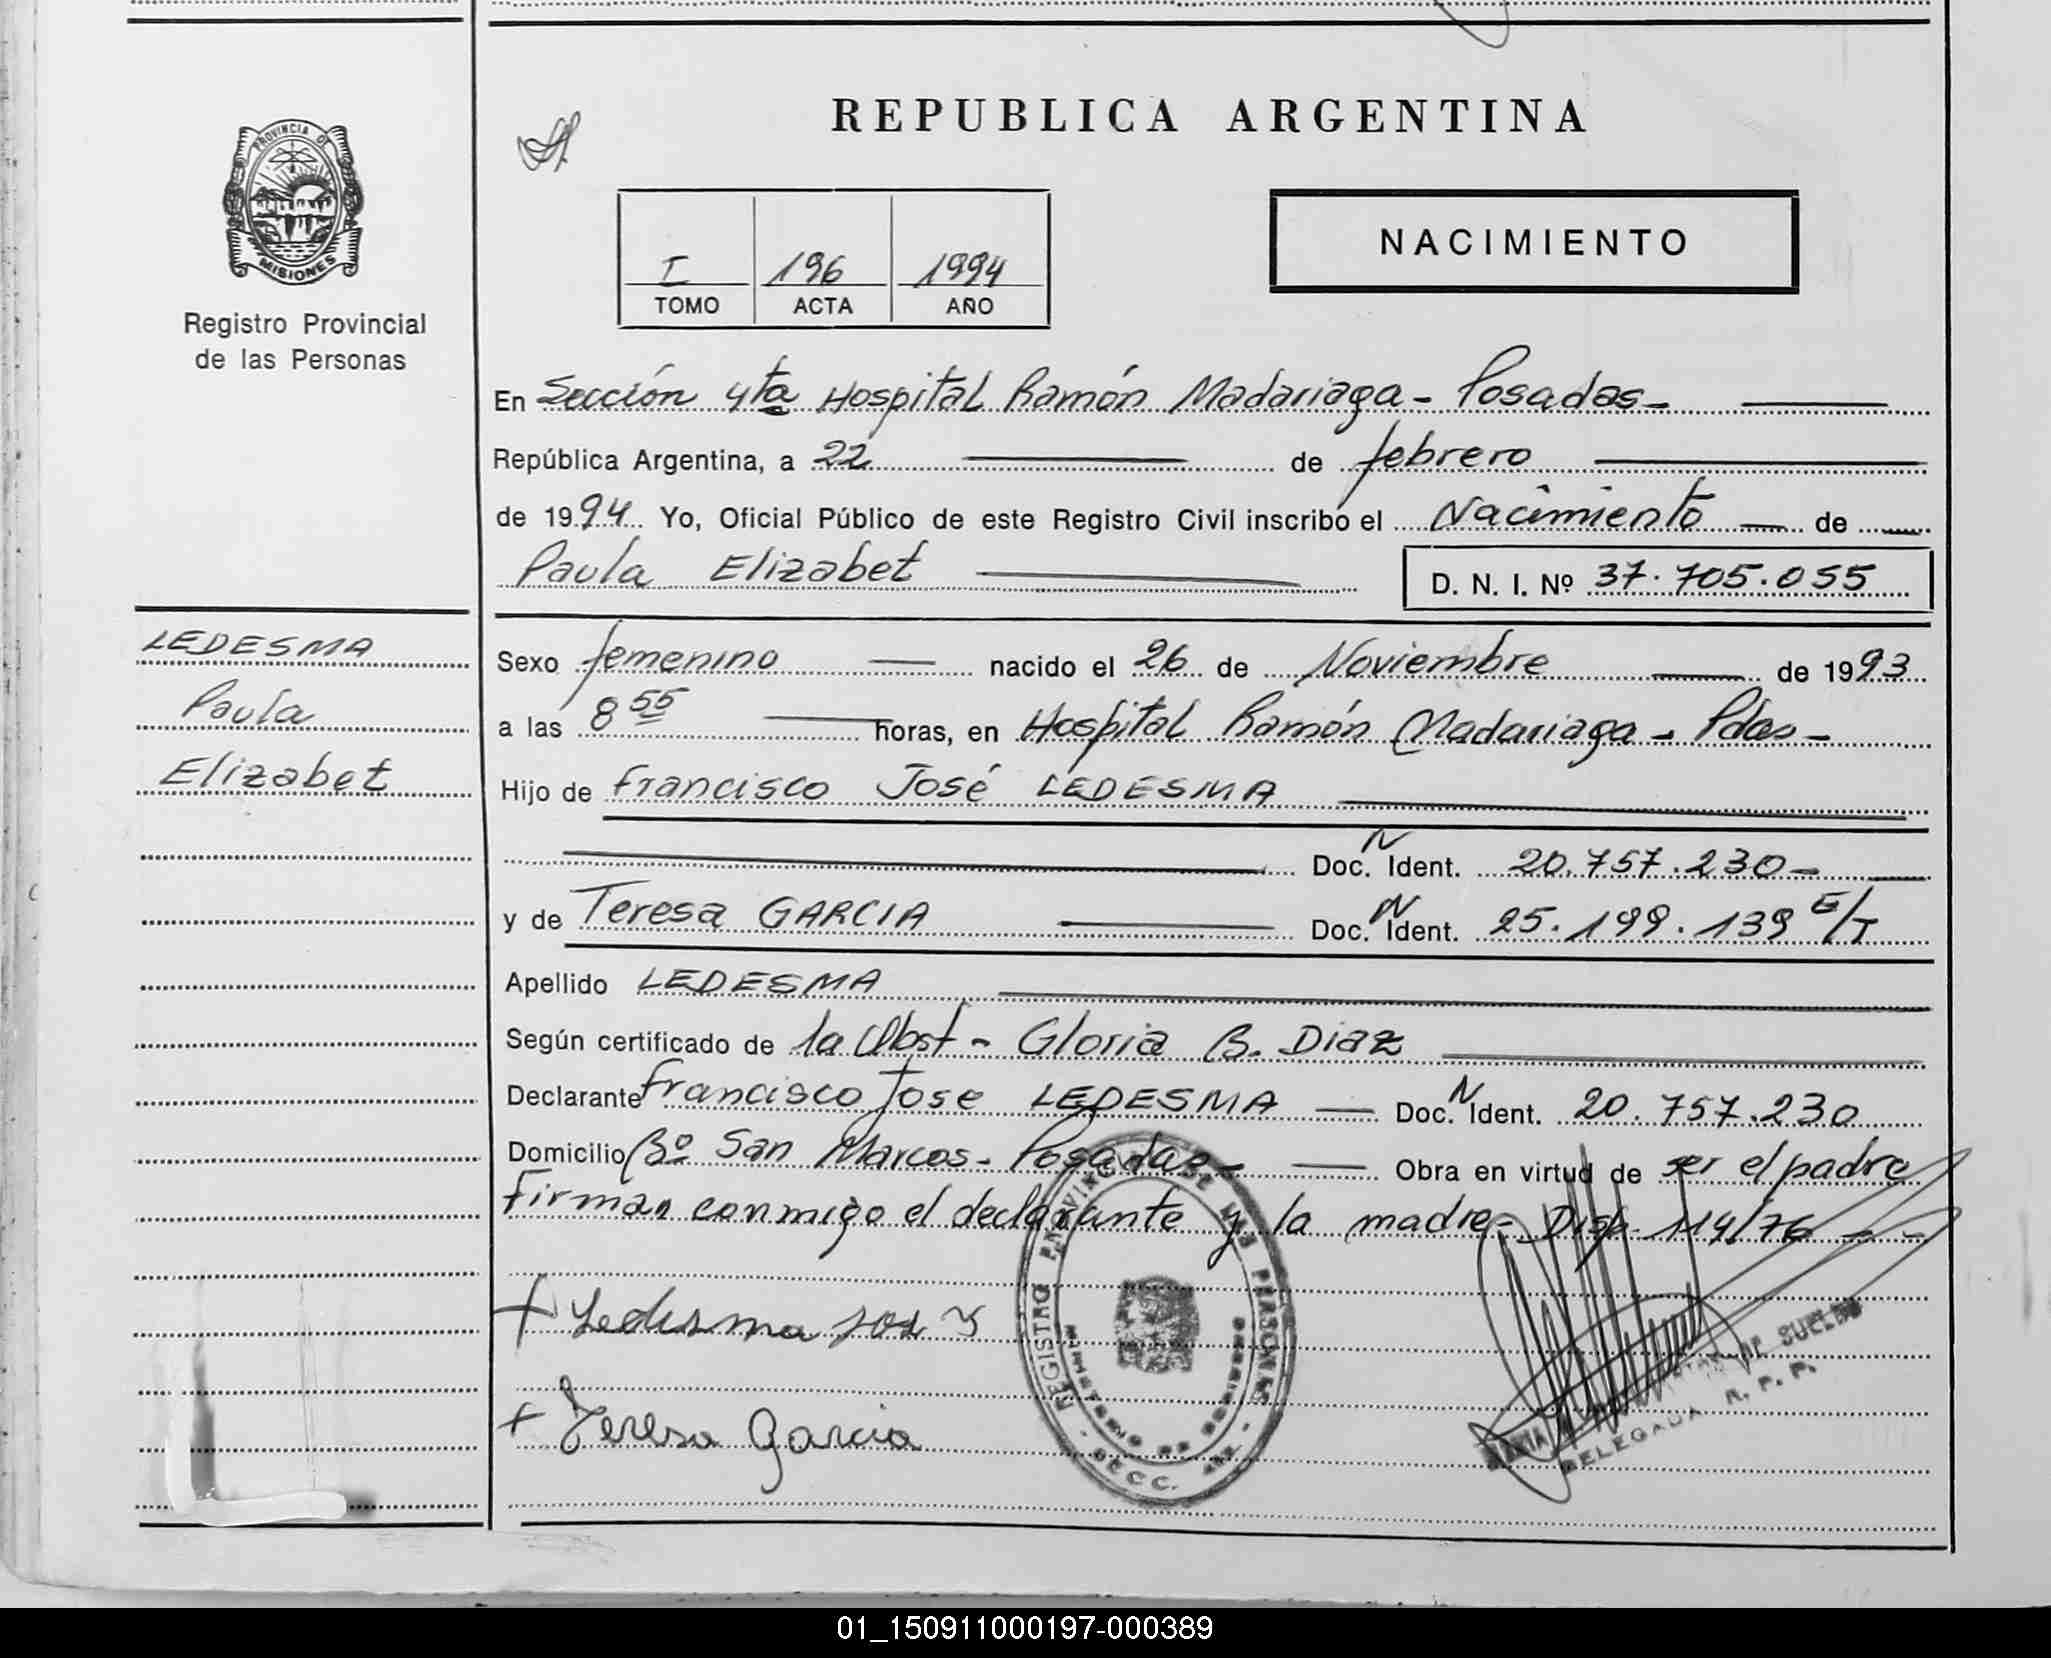 REPUBLICA ARGENTINA
PROVINCIA DE
MISIONES
Registro Provincial
de las Personas
I 196 1994
TOMO ACTA AÑO
NACIMIENTO
En Sección 4ta Hospital Ramón Madariaga - Posadas -
República Argentina, a 22 de febrero
de 1994 Yo, Oficial Público de este Registro Civil inscribo el Nacimiento de
Paula Elizabet D. N. I. Nº 37.705.055
LEDESMA
Paula
Elizabet
Sexo femenino nacido el 26 de Noviembre de 1993
a las 8 55 horas, en Hospital Ramón Madariaga - Pdas -
Hijo de Francisco José LEDESMA
Doc. N Ident. 20.757.230 -
y de Teresa GARCIA Doc. N Ident. 25.199.139 E/T
Apellido LEDESMA
Según certificado de la Obst - Gloria B. Diaz
Declarante Francisco Jose LEDESMA Doc. N Ident. 20.757.230
Domicilio Bº San Marcos - Posadas - Obra en virtud de ser el padre
Firman conmigo el declarante y la madre - Disp. 114/76 - -
+ Ledesma
+ Teresa Garcia
REGISTRO PROVINCIAL DE LAS PERSONAS
MINISTERIO DE GOBIERNO
DE SUELDO
DELEGADA R. P. P.
01_150911000197-000389